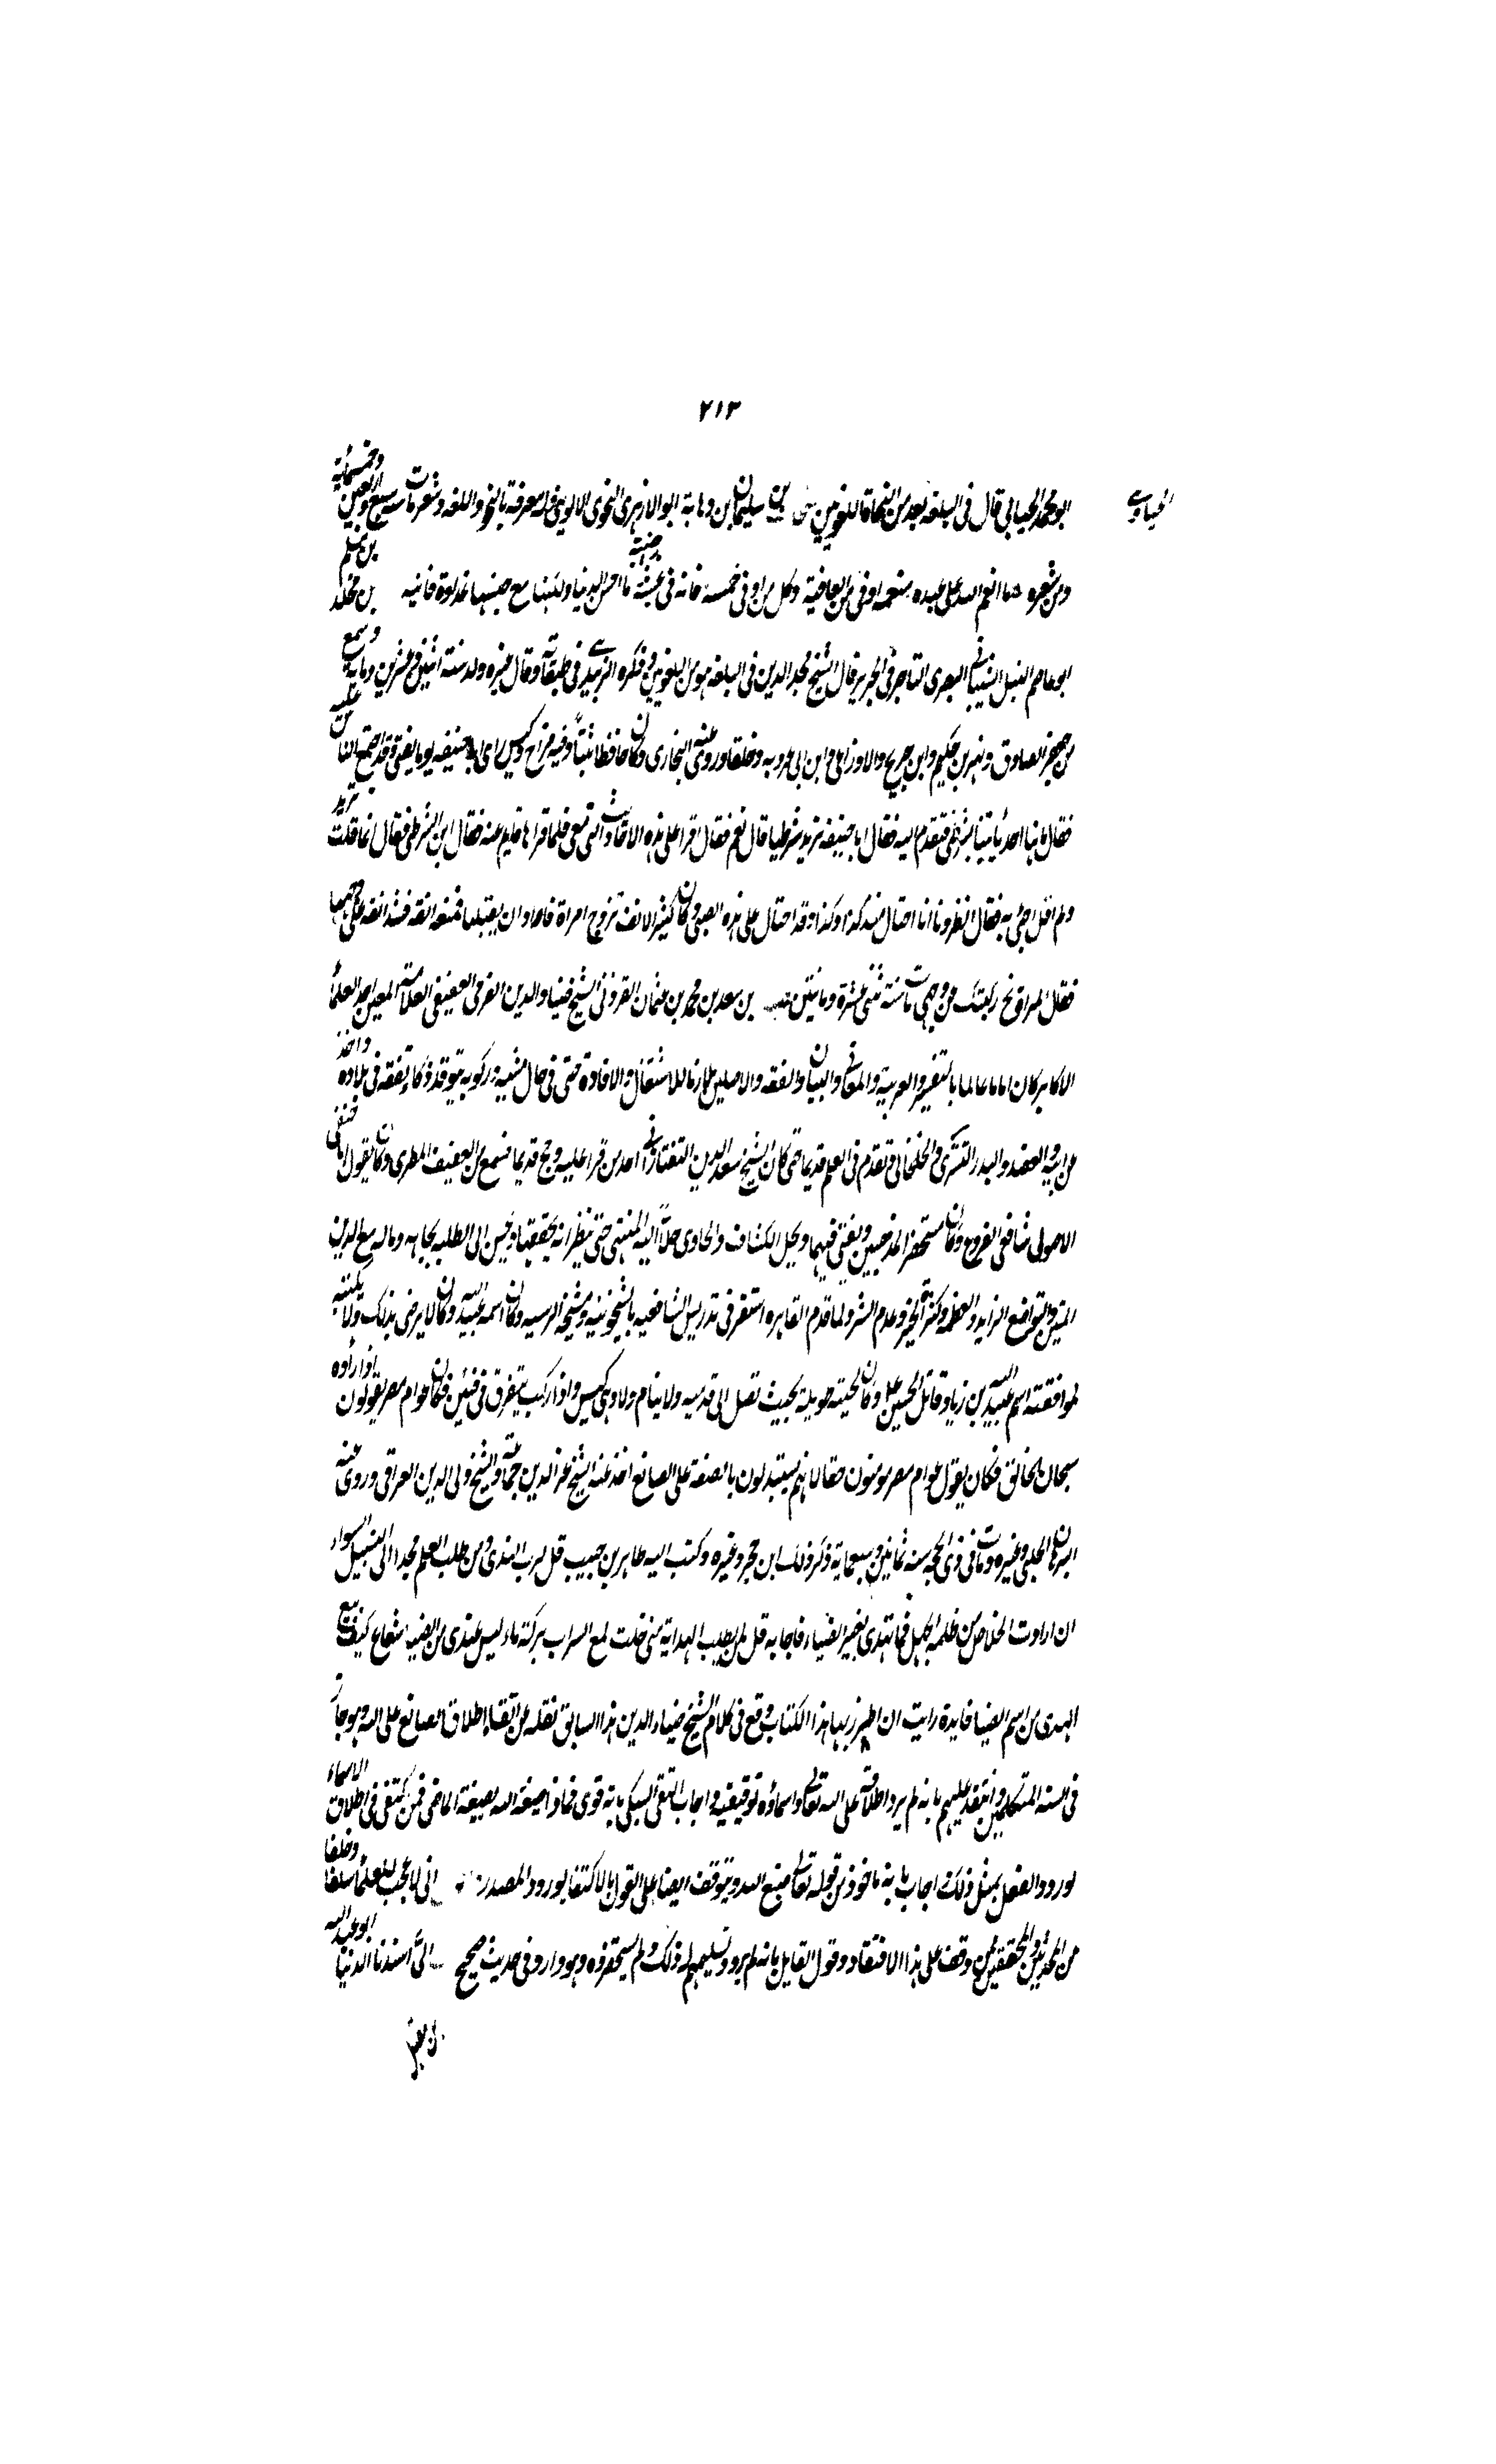 ٢١٣
ابو محمد الجيانى قال فى البلغة يعد من النحاة اللغويين بن سليمان بن وهابة ابو الازهرى النحوى الالوسى له معرفة بالنحو واللغة وشعر مات سنة سبع واربعين وخمسمائة
ومن شعره ما انعم الله على عبده بنعمة اوفى من العافية وكل من اوفى فى خمسة فانه فى عيشة ما احسن الدنيا ولكنها مع حسنها غدارة فانية بن مخلد بن مسلم
ابو عاصم النبيل الشيبانى البصرى التاجر فى الحرير قال الشيخ مجد الدين فى البلغة هو من اللغويين ذكره الزبيدى فى طبقاته وقال غيره ولد سنة اثنين وعشرين ومائة وسمع
من جعفر الصادق وبهز بن حكيم وابن جريج والاوزاعى وابن ابى عروبه وخلقا وروى عنه البخارى وكان حافظا ثبتا وفيه مزاح وكيس راى ابا حنيفه يوما يفتى وقد اجتمع الناس عليه
فقال ما هنا احد ياتينا بشرطى فتقدم اليه فقال ابا حنيفه تريد شرطيا قال نعم فقال اقرا على هذه الاحاديث التى معى فلما قراها قام عنه فقال اين الشرطى فقال انما قلت تريد
ولم اقل اجئ به فقال انظروا انا احتال منذ كذا وكذا وقد احتال على هذا الصبى وكان كبير الانف تزوج امراة فاراد ان يقبلها فمنعه انفه فشد انفه على وجهها
فقالت المراة نح ركبتك عن وجهى مات سنة ثنتى عشرة ومائتين بن سعد بن محمد بن عثمان القزوينى الشيخ ضياء الدين القرمى العفيفى العلامة المعين احد العلماء
الاكابر كان اماما عالما بالتفسير والعربية والمعانى والبيان والفقه والاصلين ملازما للاشتغال والافادة حتى فى حال مشيه وركوبه يتوقد ذكاء تفقه فى بلاده واخذ
من ابيه والعضد والبدر التسترى والخلخالى وتقدم فى العلم قديما حتى كان الشيخ سعد الدين التفتازانى احد من قرا عليه وحج قديما فسمع من العفيف المطرى وكان يقول انا حنفى
الاصول شافعى الفروع وكان مستحضرا للمذهبين ويفتى فيهما ويحل الكشاف والحاوى حلا اليه المنتهى حتى يظن انه يحفظهما ويحسن الى الطلبة بجاهه وماله مع الدين
المتين والتواضع الزايد والعظمة وكثرة الخير وعدم الشر ولما قدم القاهره استقر فى تدريس الشافعيه بالشيخونيه ومشيخة البيبرسيه وكان اسمه عبيد الله وكان لا يرضى بذلك ولا يكتبه
لموافقته اسم عبيد الله بن زياد قاتل الحسين وكان لحيته طويلة بحيث تصل الى قدميه ولا ينام الا وهى فى كيس واذا ركب يتفرق فى فئتين فكان عوام مصر يقولون اذا راوه
سبحان الخالق فكان يقول عوام مصر مومنون حقا لانهم يستدلون بالصنعة على الصانع اخذ عنه الشيخ عز الدين بن جماعة والشيخ ولى الدين العراقى وروى عنه
البرهان الحلبى وغيره ومات فى ذى الحجه سنة ثمانين وسبعماية ذكر ذلك ابن حجر وغيره وكتب اليه طاهر بن حبيب قل لرب الندى ومن طلب العلم مجدا الى سبيل السواء
ان اردت الخلاص من ظلمة الجهل فما تهتدى بغير الضياء فاجابه قل لمن يطلب الهداية منى خلت لمع السراب بركة ماء ليس عندى من الضياء شعاع كيف يبغى
الهدى من اسم الضياء فايدة رايت ان اطرز بها هذا الكتاب وقع فى كلام الشيخ ضياء الدين هذا السابق نقله عن اطلاق الصانع على الله وهو جار
فى السنة المتكلمين وانتقد عليهم بانه لم يرد اطلاقه على الله تعالى واسماؤه توقيفية واجاب التقى السبكى بانه قرئ صنعة الله بصيغة الماضى فمن اكتفى فى اطلاق الاسماء
بورود الفعل بمثل ذلك اجاب بانه ماخوذ من قوله تعالى صنع الله ويتوقف ايضا على القول بالاكتفا بورود المصدر انى لاعجب للعلماء سلفا وخلفا
من المحدثين والمحققين ممن وقف على هذا الانتقاد وقول القايل بانه لم يرد وتسليمهم له ذلك ولم يستحضروه وهو وارد فى حديث صحيح اسندنا الدنيا ابو عبد الله